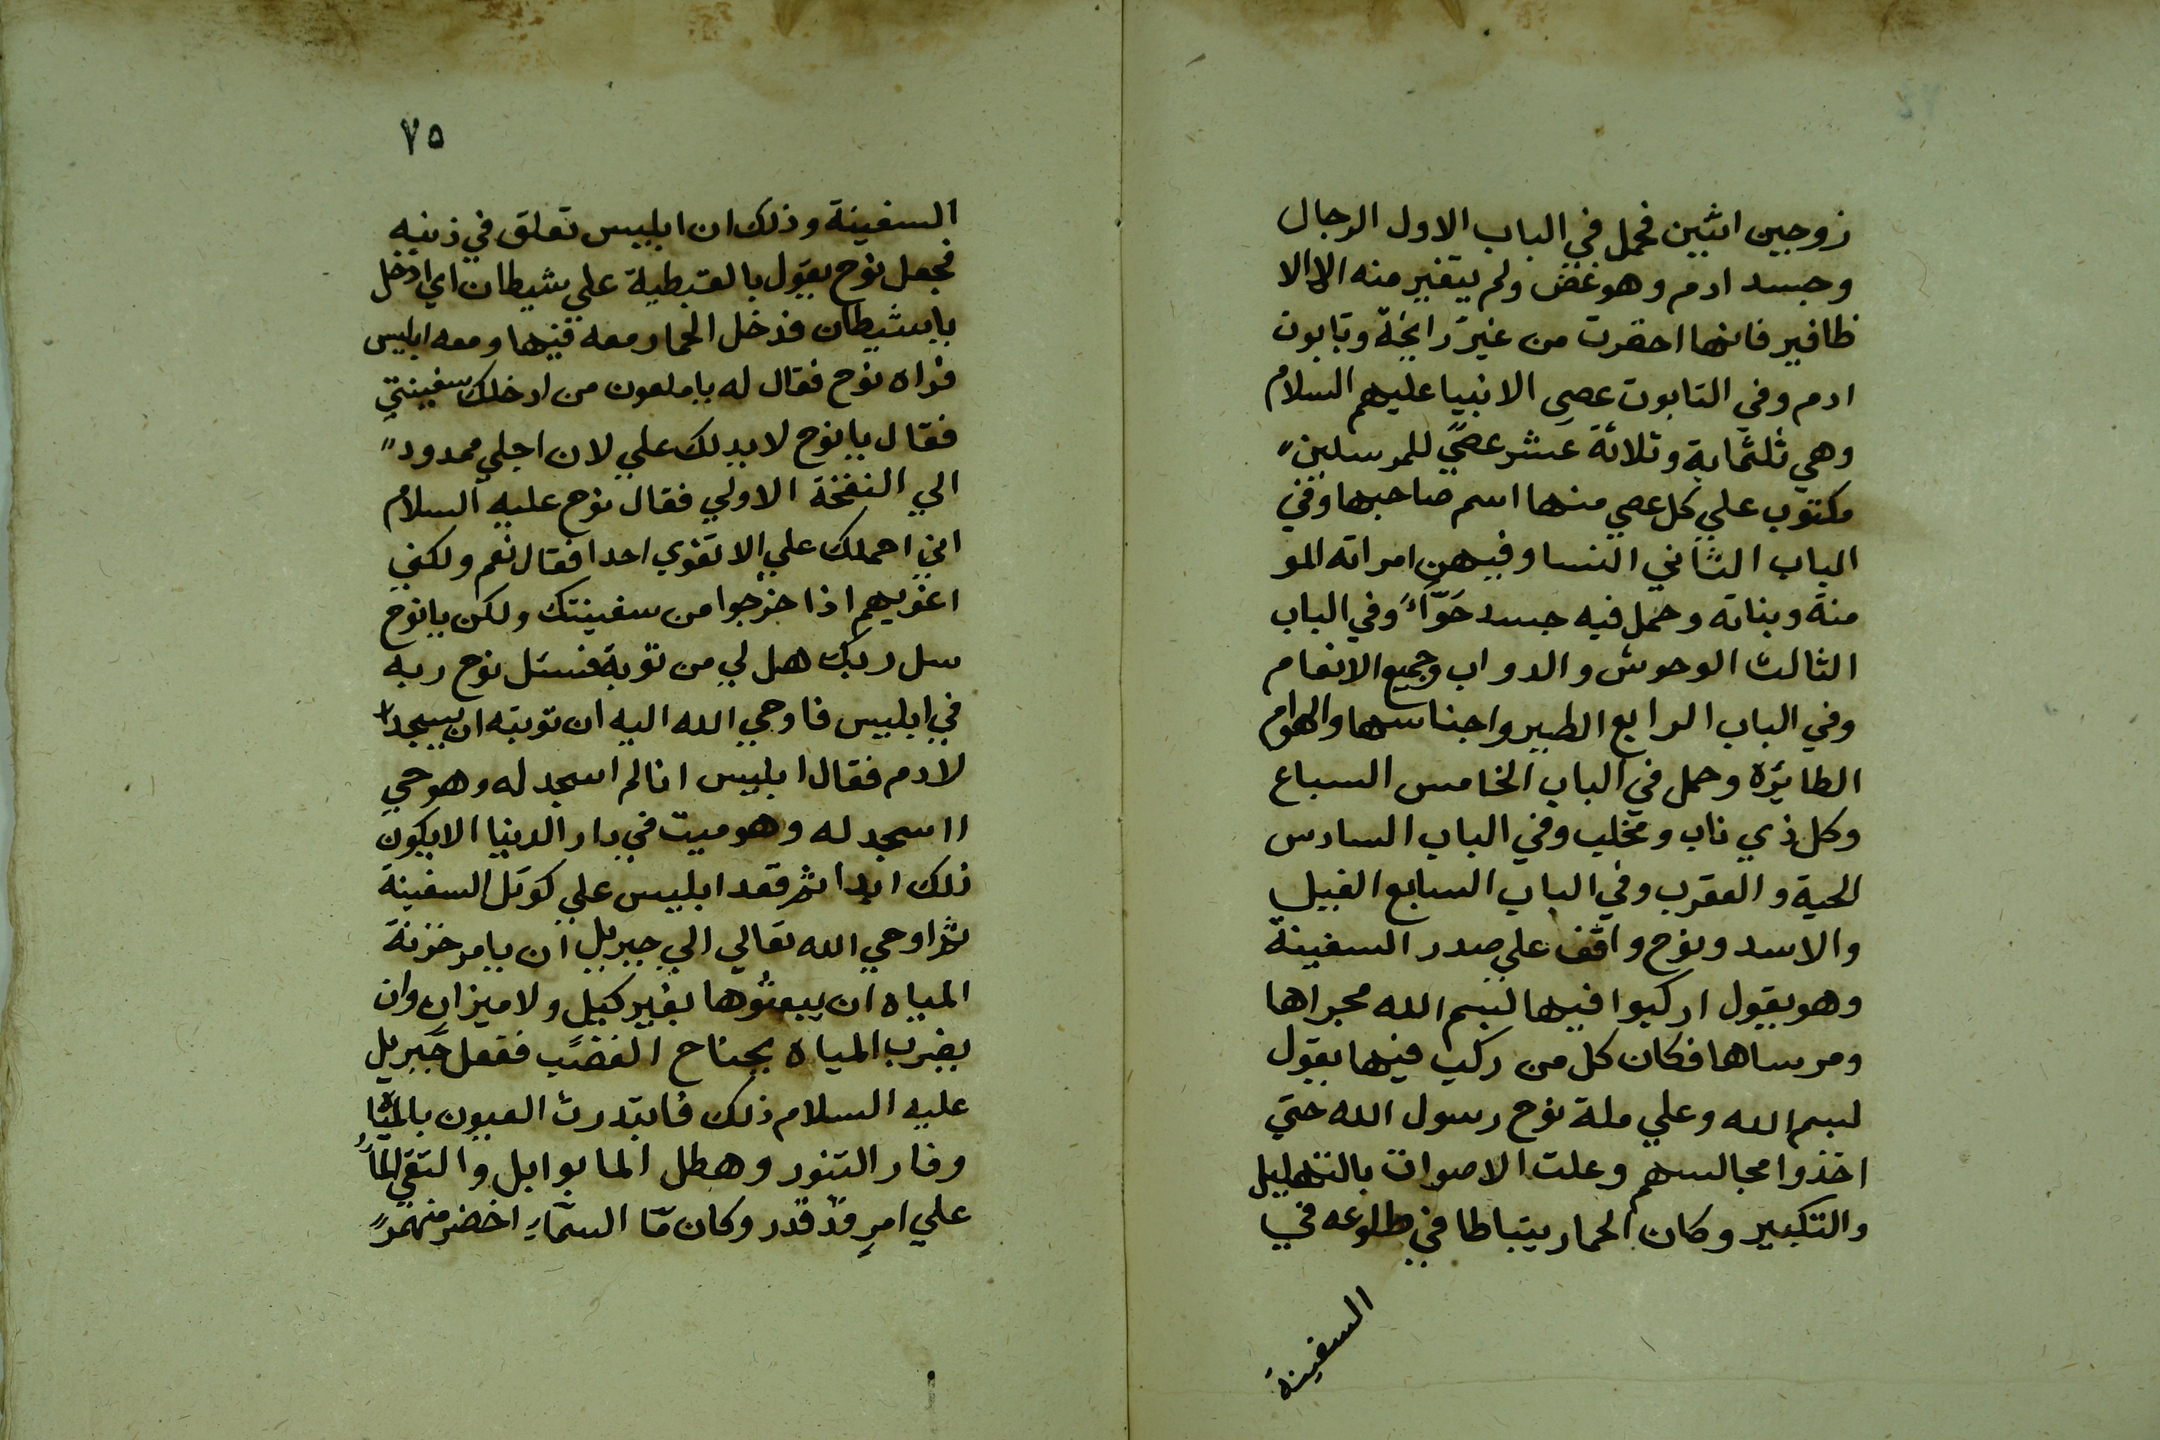 زوجين اثنين فحمل في الباب الاول الرجال
وجسد ادم وهو غض ولم يتغير منه الا الا
ظافير فانها احقرت من غير رايخة وتابوت
ادم وفي التابوت عصي الانبيا عليهم السلام
وهي ثلثماية وثلاثة عشر عصي للمرسلين
مكتوب علي كل عصي منها اسم صاحبها وفي
الباب الثاني النسا وفيهن امراته المو
منة وبناته وحمل فيه جسد حَوّآءً وفي الباب
الثالث الوحوش والدواب وجميع الانعام
وفي الباب الرابع الطير واجناسها والهوام
الطايرة وحمل في الباب الخامس السباع
وكل ذي ناب ومخلب وفي الباب السادس
الحية والعقرب وفي الباب السابع الفيل
والاسد ونوح واقف علي صدر السفينة
وهو يقول اركبوا فيها لبسم الله مجراها
ومرساها فكان كل من ركب فيها يقول
لبسم الله وعلي ملة نوح رسول الله حتي
اخذوا مجالسهم وعلت الاصوات بالتهليل
والتكبير وكان الحمار يتباطا في طلوعه في
السفينة
٧٥
السفينة وذلك ان ابليس تعلق في ذنبه
فجعل نوح يقول بالقبطية علي شيطان اي ادخل
ياشيطان فدخل الحمار معه فيها ومعه ابليس
فراه نوح فقال له ياملعون من ادخلك سفينتي
فقال يانوح لابد لك علي لان اجلي ممدود
الي النفخة الاولي فقال نوح عليه السلام
اني احملك علي الا تغوي احدا فقال نعم ولكني
اغويهم اذا خرجوا من سفينتك ولكن يانوح
سل ربك هل لي من توبة فسئل نوح ربه
في ابليس فاوحي الله اليه ان توبته ان يسجد
لادم فقال ابليس انا لم اسجد له وهو حي
ااسجد له وهو ميت في دار الدنيا الايكون
ذلك ابدا ثم قعد ابليس علي كوتل السفينة
ثم اوحي الله تعالي الي جبريل ان يامر خزنة
المياه ان يبعثوها بغير كيل ولا ميزان وان
يضرب المياه بجناح الغضب ففعل جبريل
عليه السلام ذلك فابتدرت العيون بالمياه
وفار التنور وهطل الما بوابل والتقي الماُ
علي امرٍ قد قدر وكان مّا السّمآءِ اخضر منهمرً